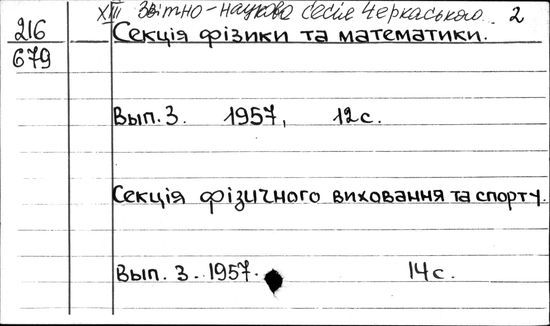 XIII Звітно-наукова сесія Черкаського. 2
216
679
Секція фізики та математики.
Вып. 3. 1957, 12с.
Секція фізичного виховання та спорту.
Вып. 3. 1957. 14с.